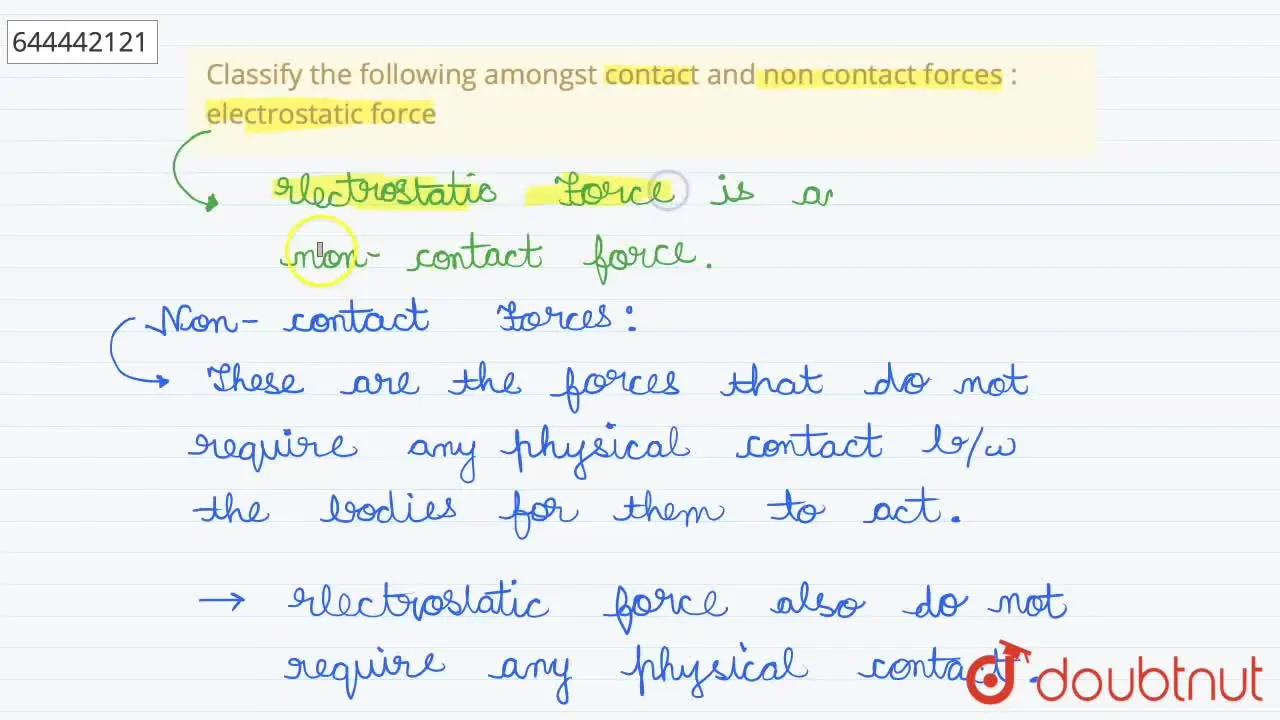 644442121
Classify the following amongst contact and non contact forces :
electrostatic force
Electrostatic Force is a
non- contact force.
Non- contact Forces:
These are the forces that do not
require any physical contact b/w
the bodies for them to act.
→ Electrostatic force also do not
require any physical contact.
doubtnut